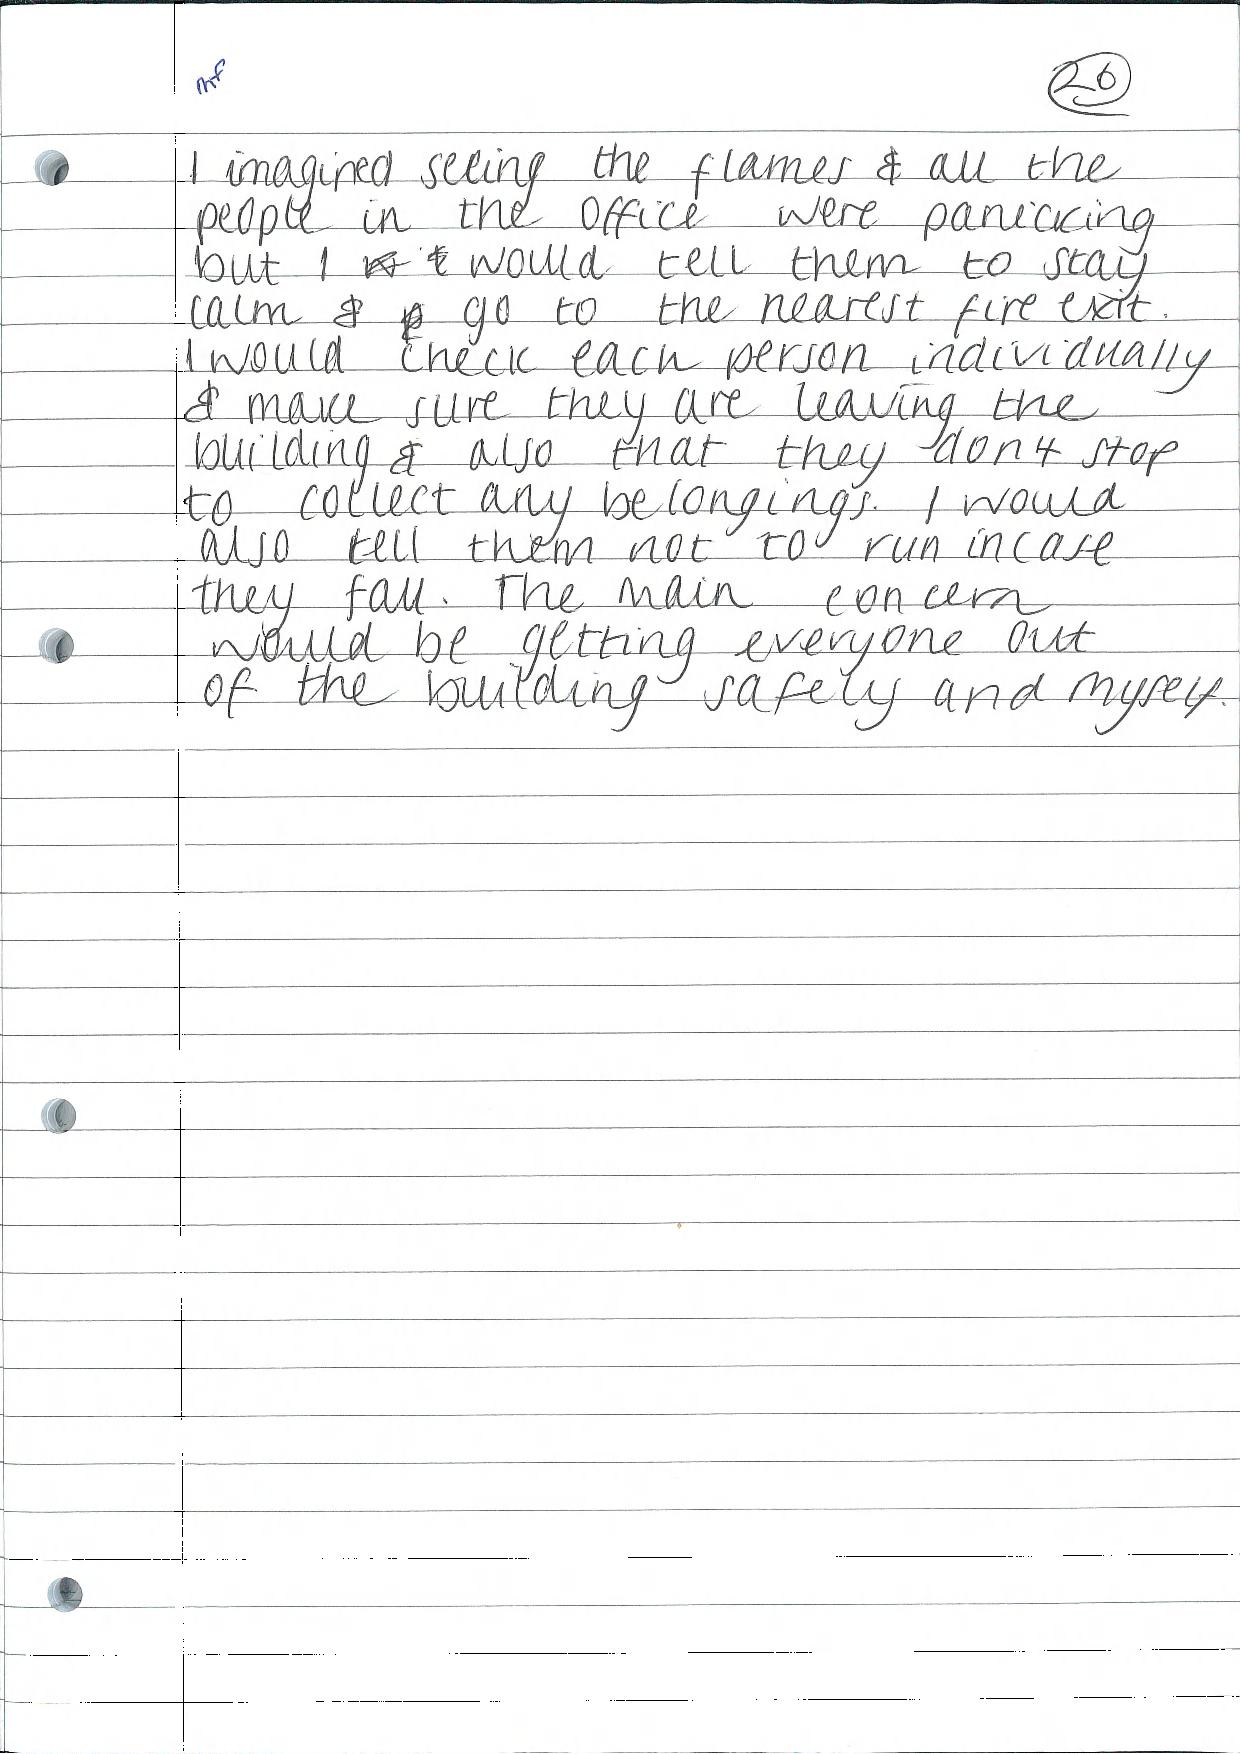 mf
26
I imagined seeing the flames & all the
people in the office were panicking
but I would tell them to stay
calm & go to the nearest fire exit.
I would check each person individually
& make sure they are leaving the
building & also that they don't stop
to collect any belongings. I would
also tell them not to run incase
they fall. The main concern
would be getting everyone out
of the building safely and myself.